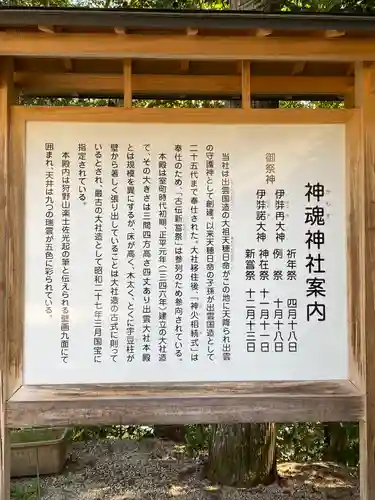 神魂神社案内
かもす
御祭神
伊弉冉大神
伊弉諾大神
祈年祭 四月十八日
例祭 十月十八日
神在祭 十二月十一日
新嘗祭 十二月十三日
当社は出雲国造の大祖天穂日命がこの地に天降られ出雲
の守護神として創建、以来天穂日命の子孫が出雲国造として
二十五代まで奉仕された。大社移住後、「神火相続式」は
奉仕のため、「古伝新嘗祭」は参列のため参向されている。
本殿は室町時代初期、正平元年(一三四六年)建立の大社造
で、その大きさは三間四方高さ四丈あり出雲大社本殿
とは規模を異にするが、床が高く、木太く、とくに宇豆柱が
壁から著しく張り出していることは大社造の古式に則って
いるとされ、最古の大社造として昭和二十七年三月国宝に
指定されている。
本殿内は狩野山楽土佐光起の筆と伝えられる壁画九面にて
囲まれ、天井は九つの瑞雲が五色に彩られている。